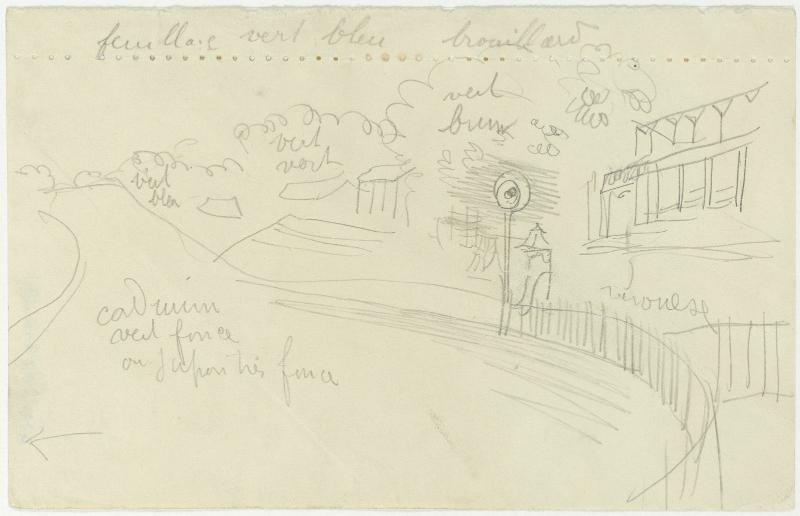 feuillage vert bleu brouillard
vert
brun
vert
vert
vert
bleu
véronese
cadmium
vert foncé
ou japon très foncé